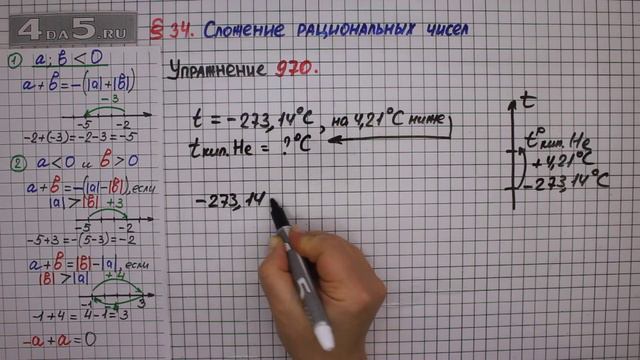 4DA5.RU
§ 34. Сложение рациональных чисел
Упражнение 970.
1 a; b < 0
a + b = -(|a| + |b|)
-3
-5 -2
-2+(-3)=-2-3=-5
2 a < 0 и b > 0
a + b = -(|a| - |b|), если
|a| > |b|
+3
-5 -2
-5+3=-(5-3)=-2
a + b = |b| - |a|, если
|b| > |a|
+4
-1 3
-1+4=4-1=3
-a + a = 0
t = -273,14°C, на 4,21°C ниже
t кип. He = ?°C
-273,14
t
t° кип. He
+4,21°C
-273,14°C